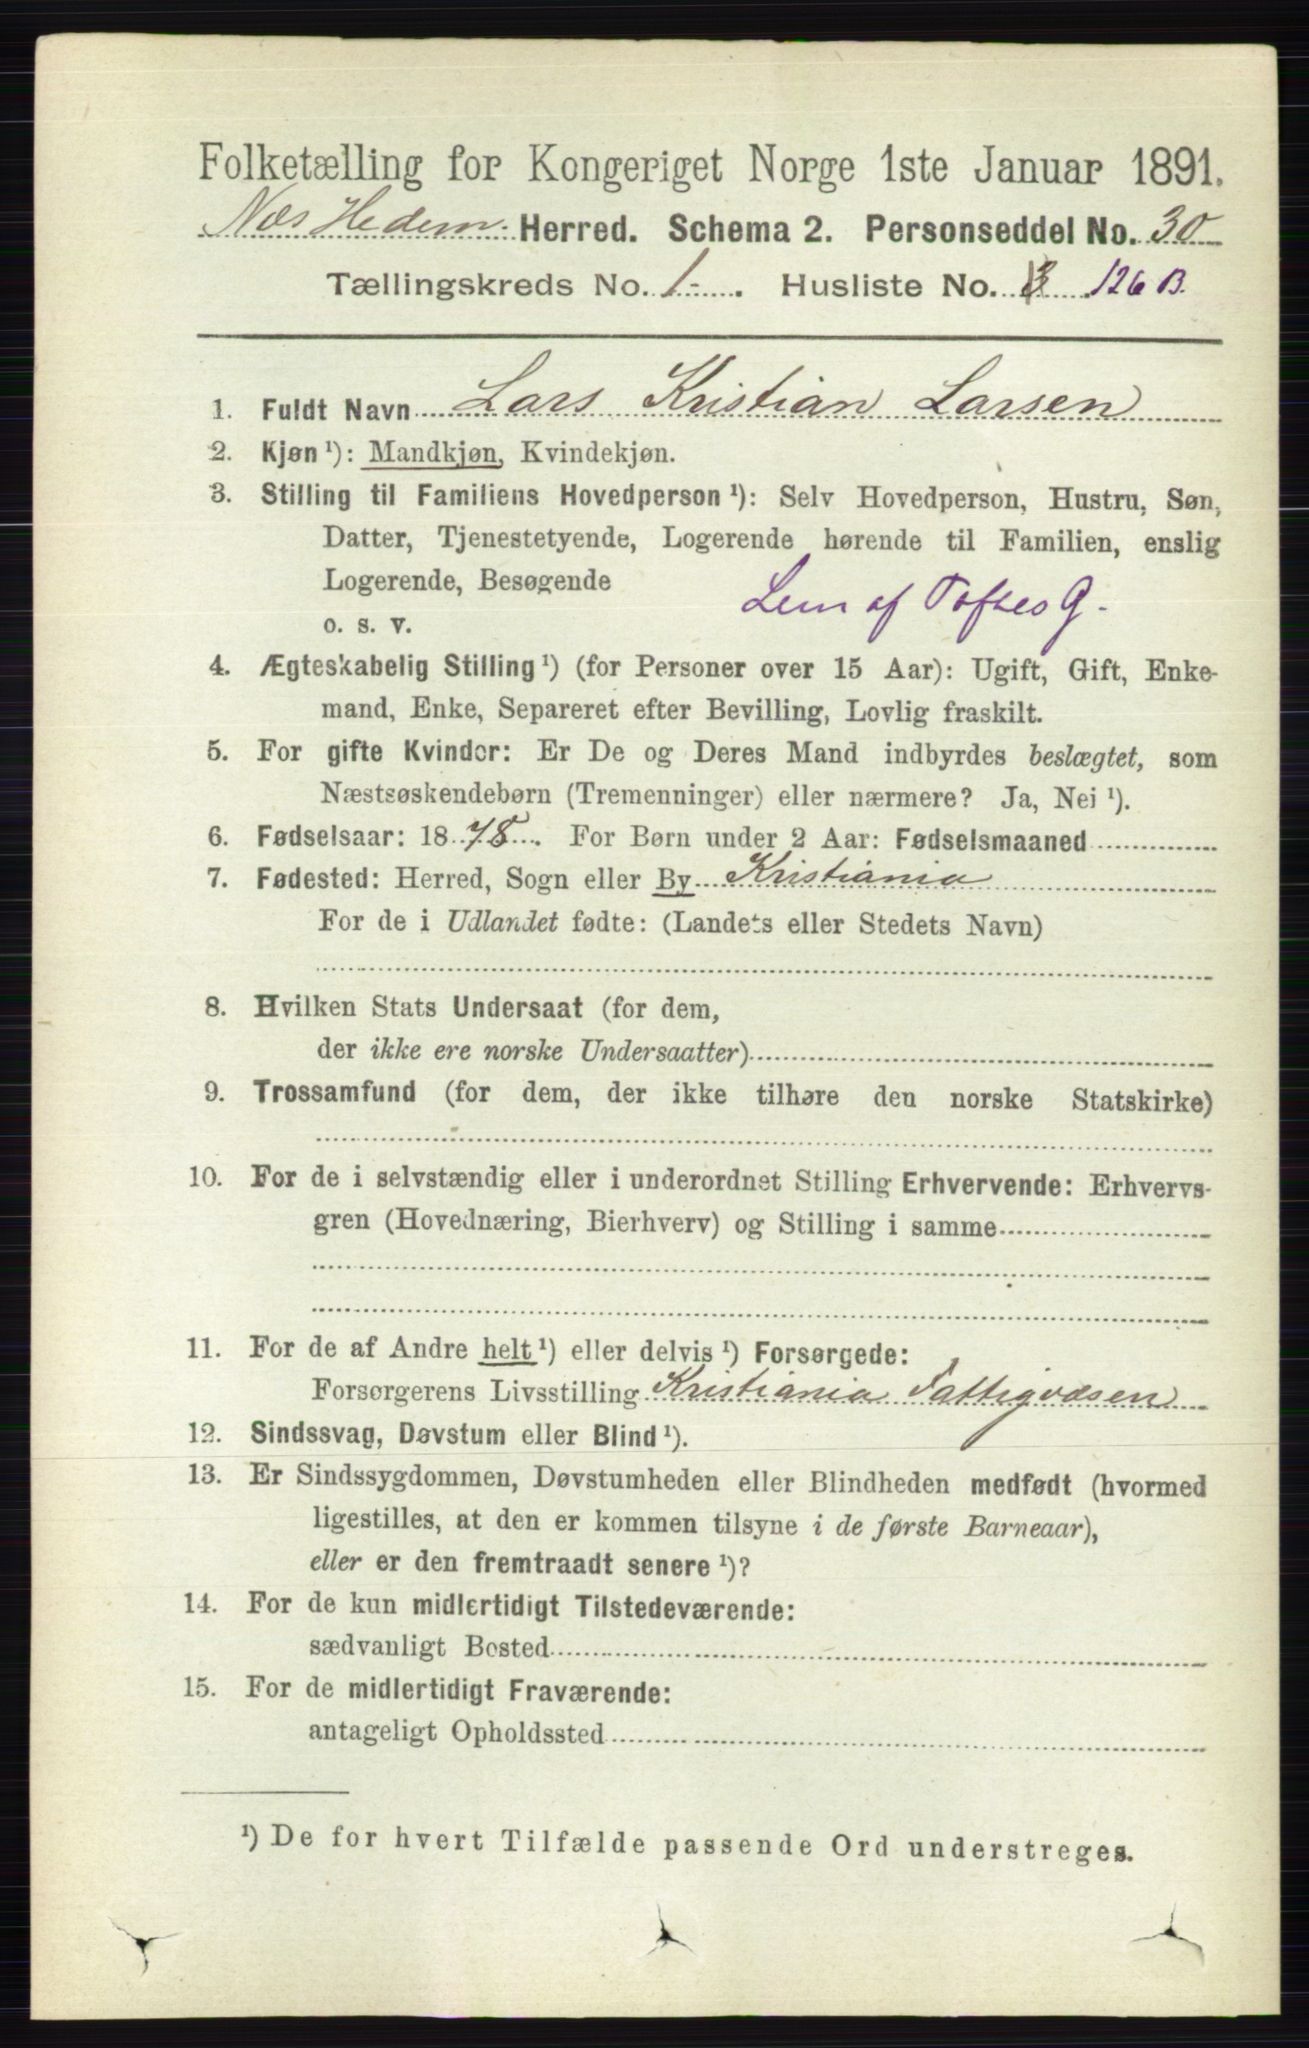 Folketælling for Kongeriget Norge 1ste Januar 1891.
Næs Hedem. Herred. Schema 2. Personseddel No. 30
Tællingskreds No. 1 . Husliste No. 126 B.
1. Fuldt Navn Lars Kristian Larsen
2. Kjøn ¹): Mandkjøn, Kvindekjøn.
3. Stilling til Familiens Hovedperson ¹): Selv Hovedperson, Hustru, Søn,
Datter, Tjenestetyende, Logerende hørende til Familien, enslig
Logerende, Besøgende
o. s. v. Lem af Toftes G.
4. Ægteskabelig Stilling ¹) (for Personer over 15 Aar): Ugift, Gift, Enke-
mand, Enke, Separeret efter Bevilling, Lovlig fraskilt.
5. For gifte Kvinder: Er De og Deres Mand indbyrdes beslægtet, som
Næstsøskendebørn (Tremenninger) eller nærmere? Ja, Nei ¹).
6. Fødselsaar: 1878. For Børn under 2 Aar: Fødselsmaaned
7. Fødested: Herred, Sogn eller By Kristiania
For de i Udlandet fødte: (Landets eller Stedets Navn)
8. Hvilken Stats Undersaat (for dem,
der ikke ere norske Undersaatter)
9. Trossamfund (for dem, der ikke tilhøre den norske Statskirke)
10. For de i selvstændig eller i underordnet Stilling Erhvervende: Erhvervs-
gren (Hovednæring, Bierhverv) og Stilling i samme
11. For de af Andre helt ¹) eller delvis ¹) Forsørgede:
Forsørgerens Livsstilling Kristiania Fattigvæsen
12. Sindssvag, Døvstum eller Blind ¹).
13. Er Sindssygdommen, Døvstumheden eller Blindheden medfødt (hvormed
ligestilles, at den er kommen tilsyne i de første Barneaar),
eller er den fremtraadt senere ¹)?
14. For de kun midlertidigt Tilstedeværende:
sædvanligt Bosted
15. For de midlertidigt Fraværende:
antageligt Opholdssted
¹) De for hvert Tilfælde passende Ord understreges.